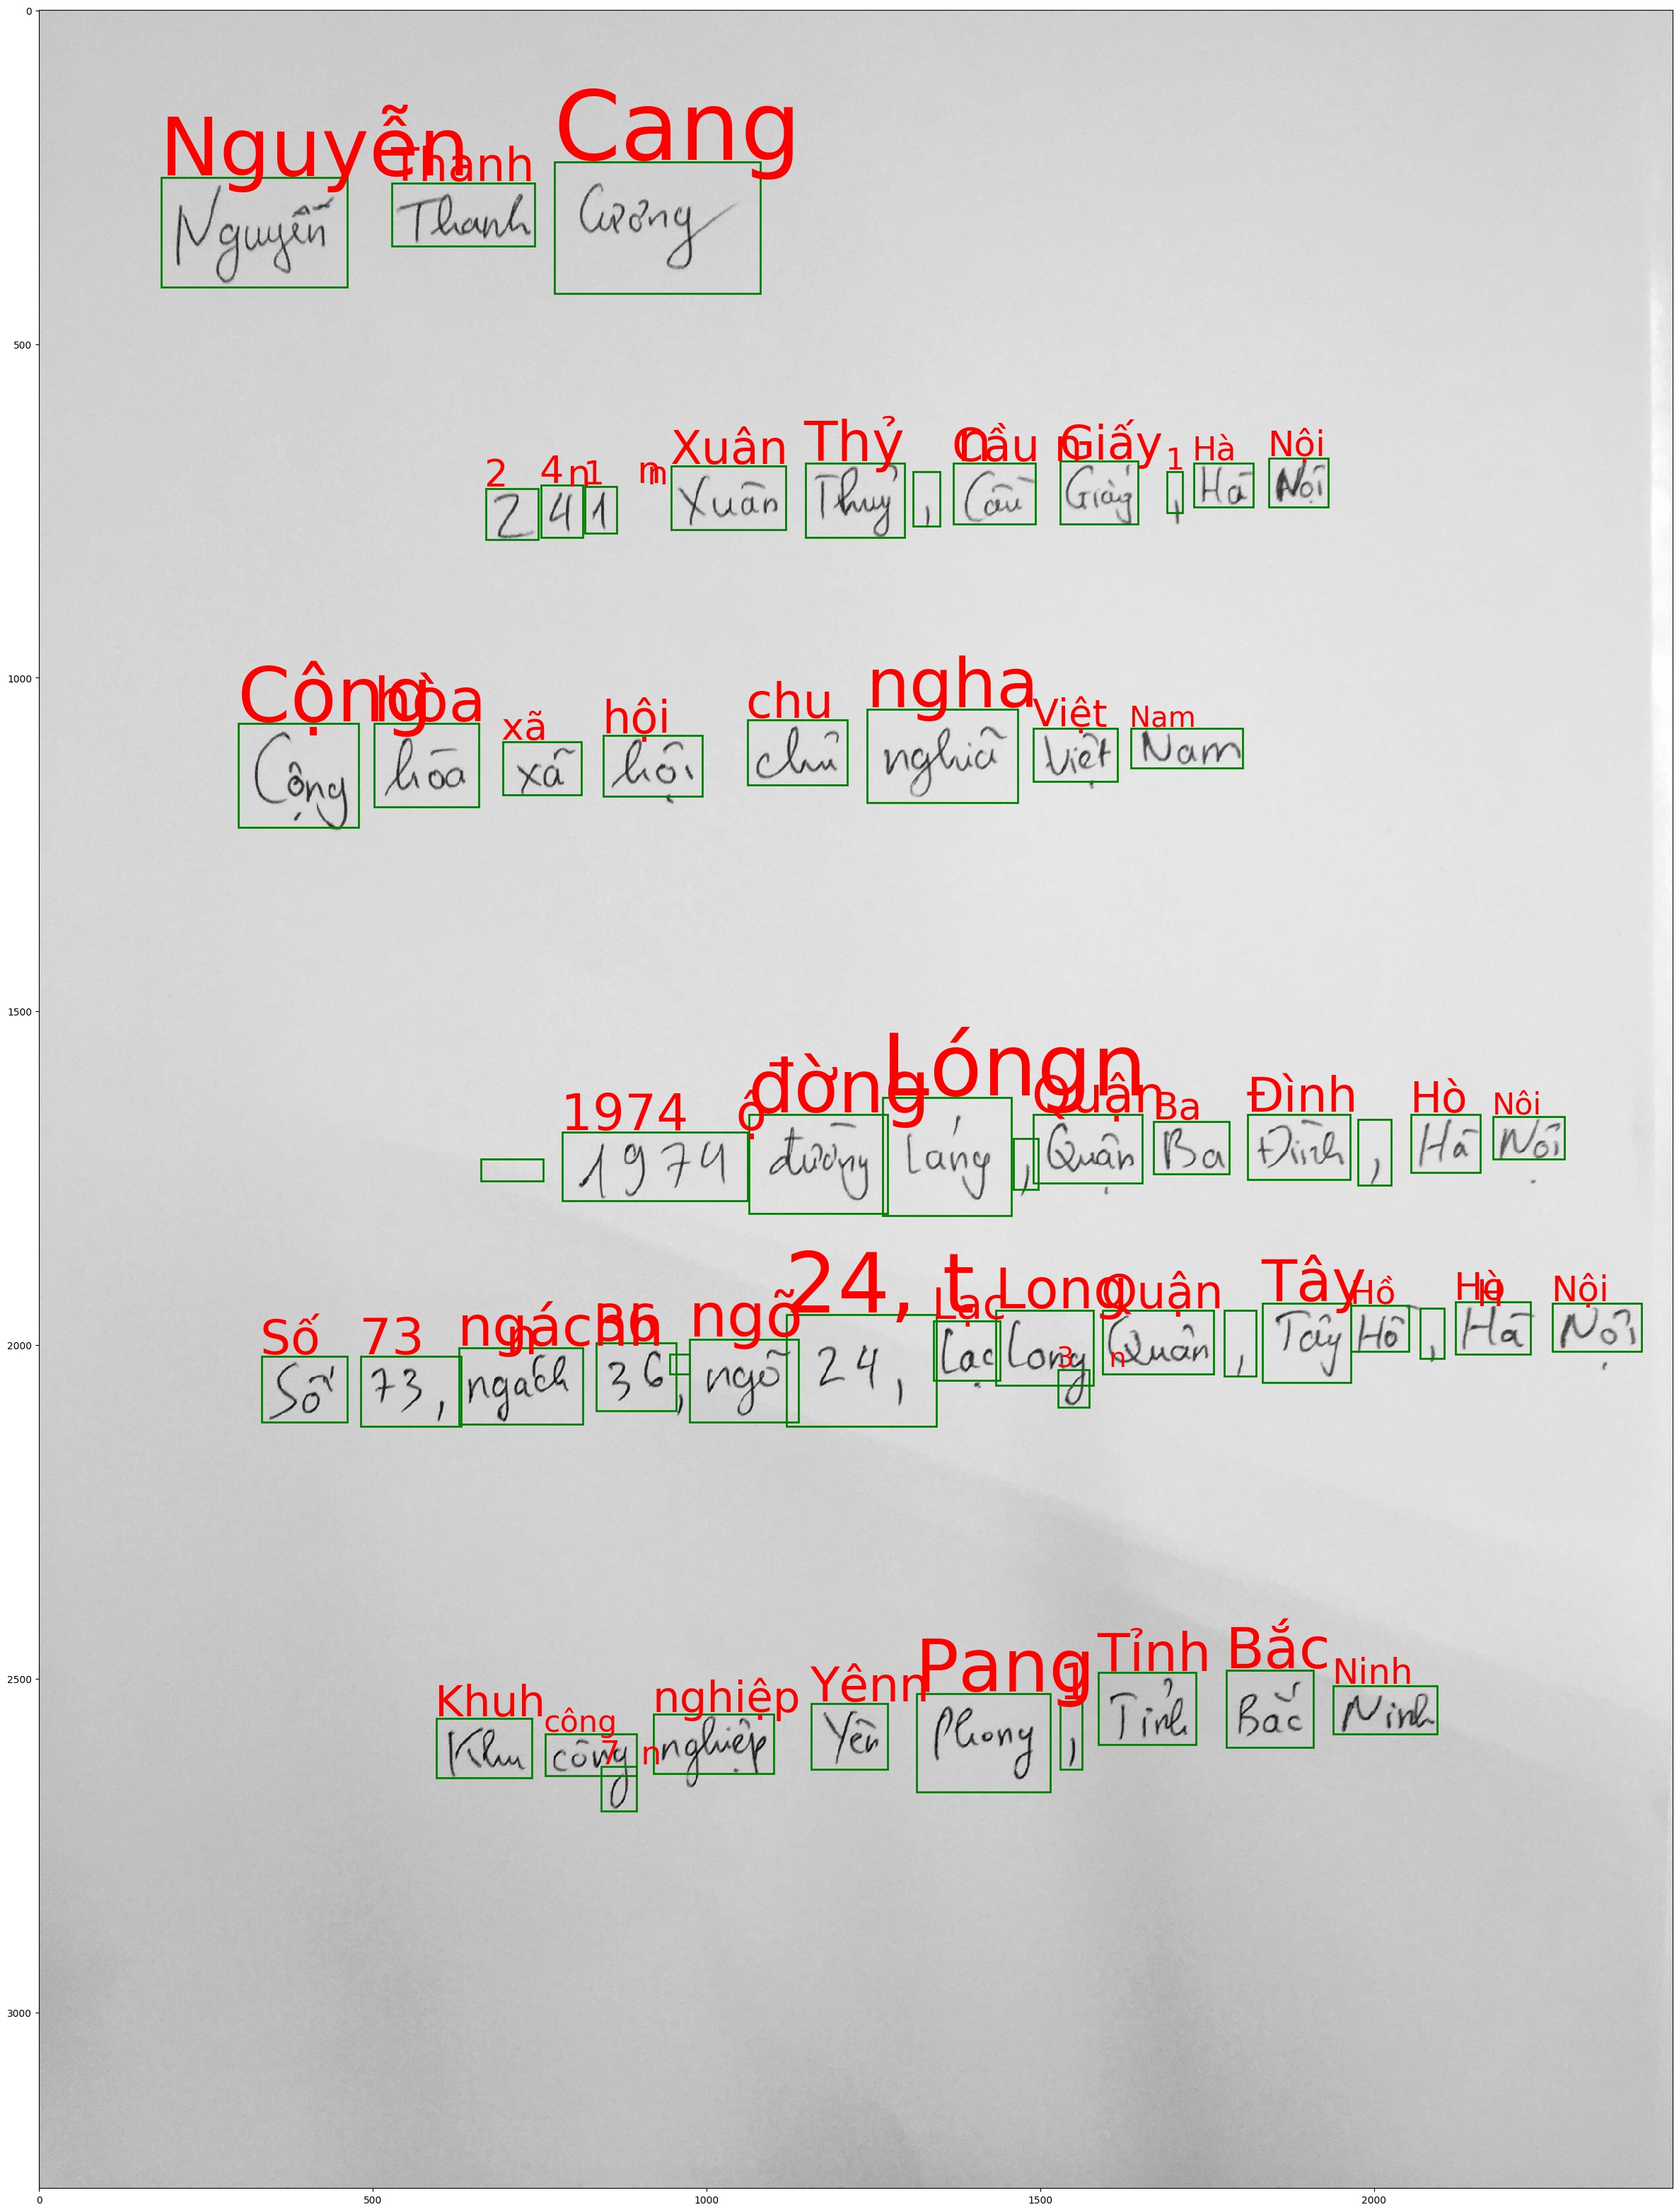 0
Nguyễn Thanh Cang
Nguyễn Thanh Cương
500
2 4n 1 n n Xuân Thỷ n Cầu n Giấy 1 Hà Nội
2 4 1 Xuân Thuỷ, Cầu Giấy, Hà Nội
1000
Cộng hòa xã hội chu ngha Việt Nam
Cộng hòa xã hội chủ nghĩa Việt Nam
1500
1974 ộ đờng Lóngn Quận Ba Đình Hò Nôi
1974 đường Láng, Quận Ba Đình, Hà Nội
Số 73 ngách n 36 ngõ 24, t Lạc Long 3 n Quận Tây Hồ Hò Nội
2000
Số 73, ngách 36, ngõ 24, Lạc Long Quân, Tây Hồ, Hà Nội
2500
Khuh công 7 n nghiệp Yênn Pang 1 Tỉnh Bắc Ninh
Khu công nghiệp Yên Phong, Tỉnh Bắc Ninh
3000
0 500 1000 1500 2000